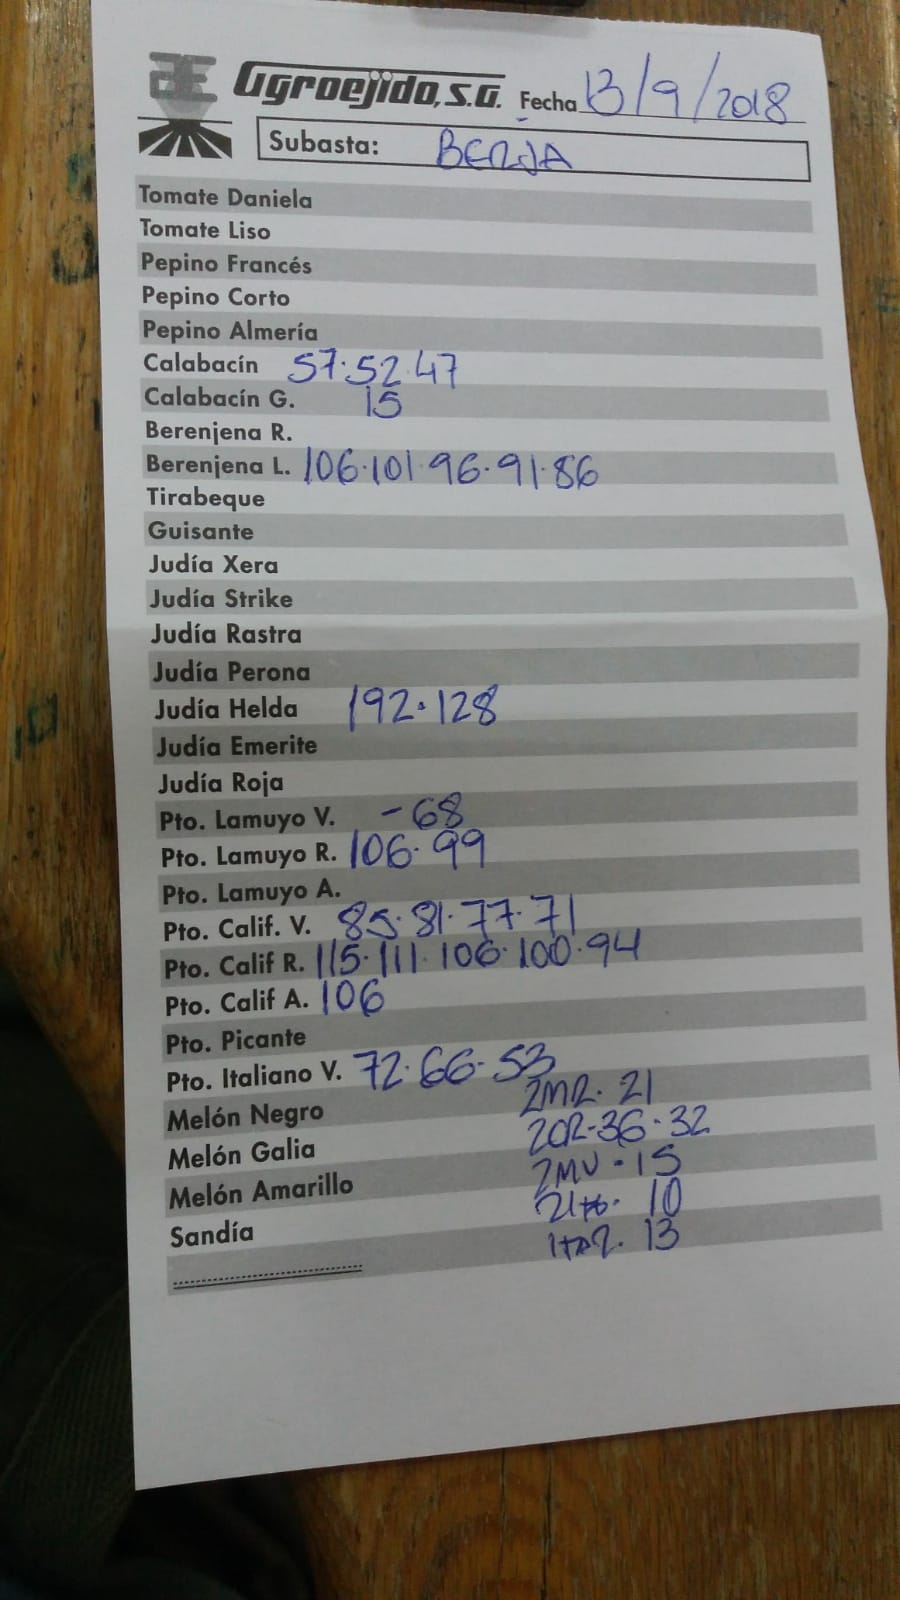 AE Agroejido, S.A. Fecha 13/9/2018
Subasta: BERJA
Tomate Daniela
Tomate Liso
Pepino Francés
Pepino Corto
Pepino Almería
Calabacín 57.52.47
Calabacín G. 15
Berenjena R.
Berenjena L. 106.101.96.91.86
Tirabeque
Guisante
Judía Xera
Judía Strike
Judía Rastra
Judía Perona
Judía Helda 192.128
Judía Emerite
Judía Roja
Pto. Lamuyo V. -68
Pto. Lamuyo R. 106.99
Pto. Lamuyo A.
Pto. Calif. V. 85.81.77.71
Pto. Calif R. 115.111.106.100.94
Pto. Calif A. 106
Pto. Picante
Pto. Italiano V. 72.66.53
Melón Negro 2MR. 21
Melón Galia 2CR-36.32
Melón Amarillo 2MV.15
10
Sandía 13